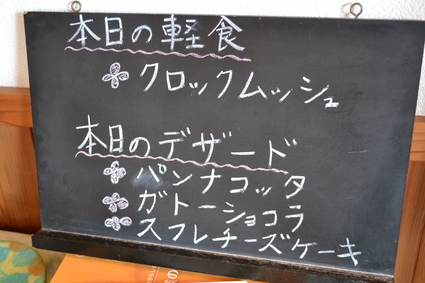 本日の軽食
クロックムッシュ
本日のデザード
パンナコッタ
ガトーショコラ
スフレチーズケーキ